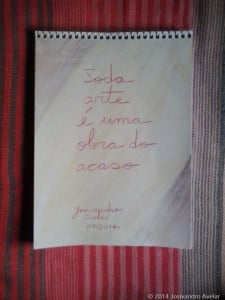 Toda
arte
é uma
obra do
acaso
Josivandro
Avelar
© 2014 Josivandro Avelar